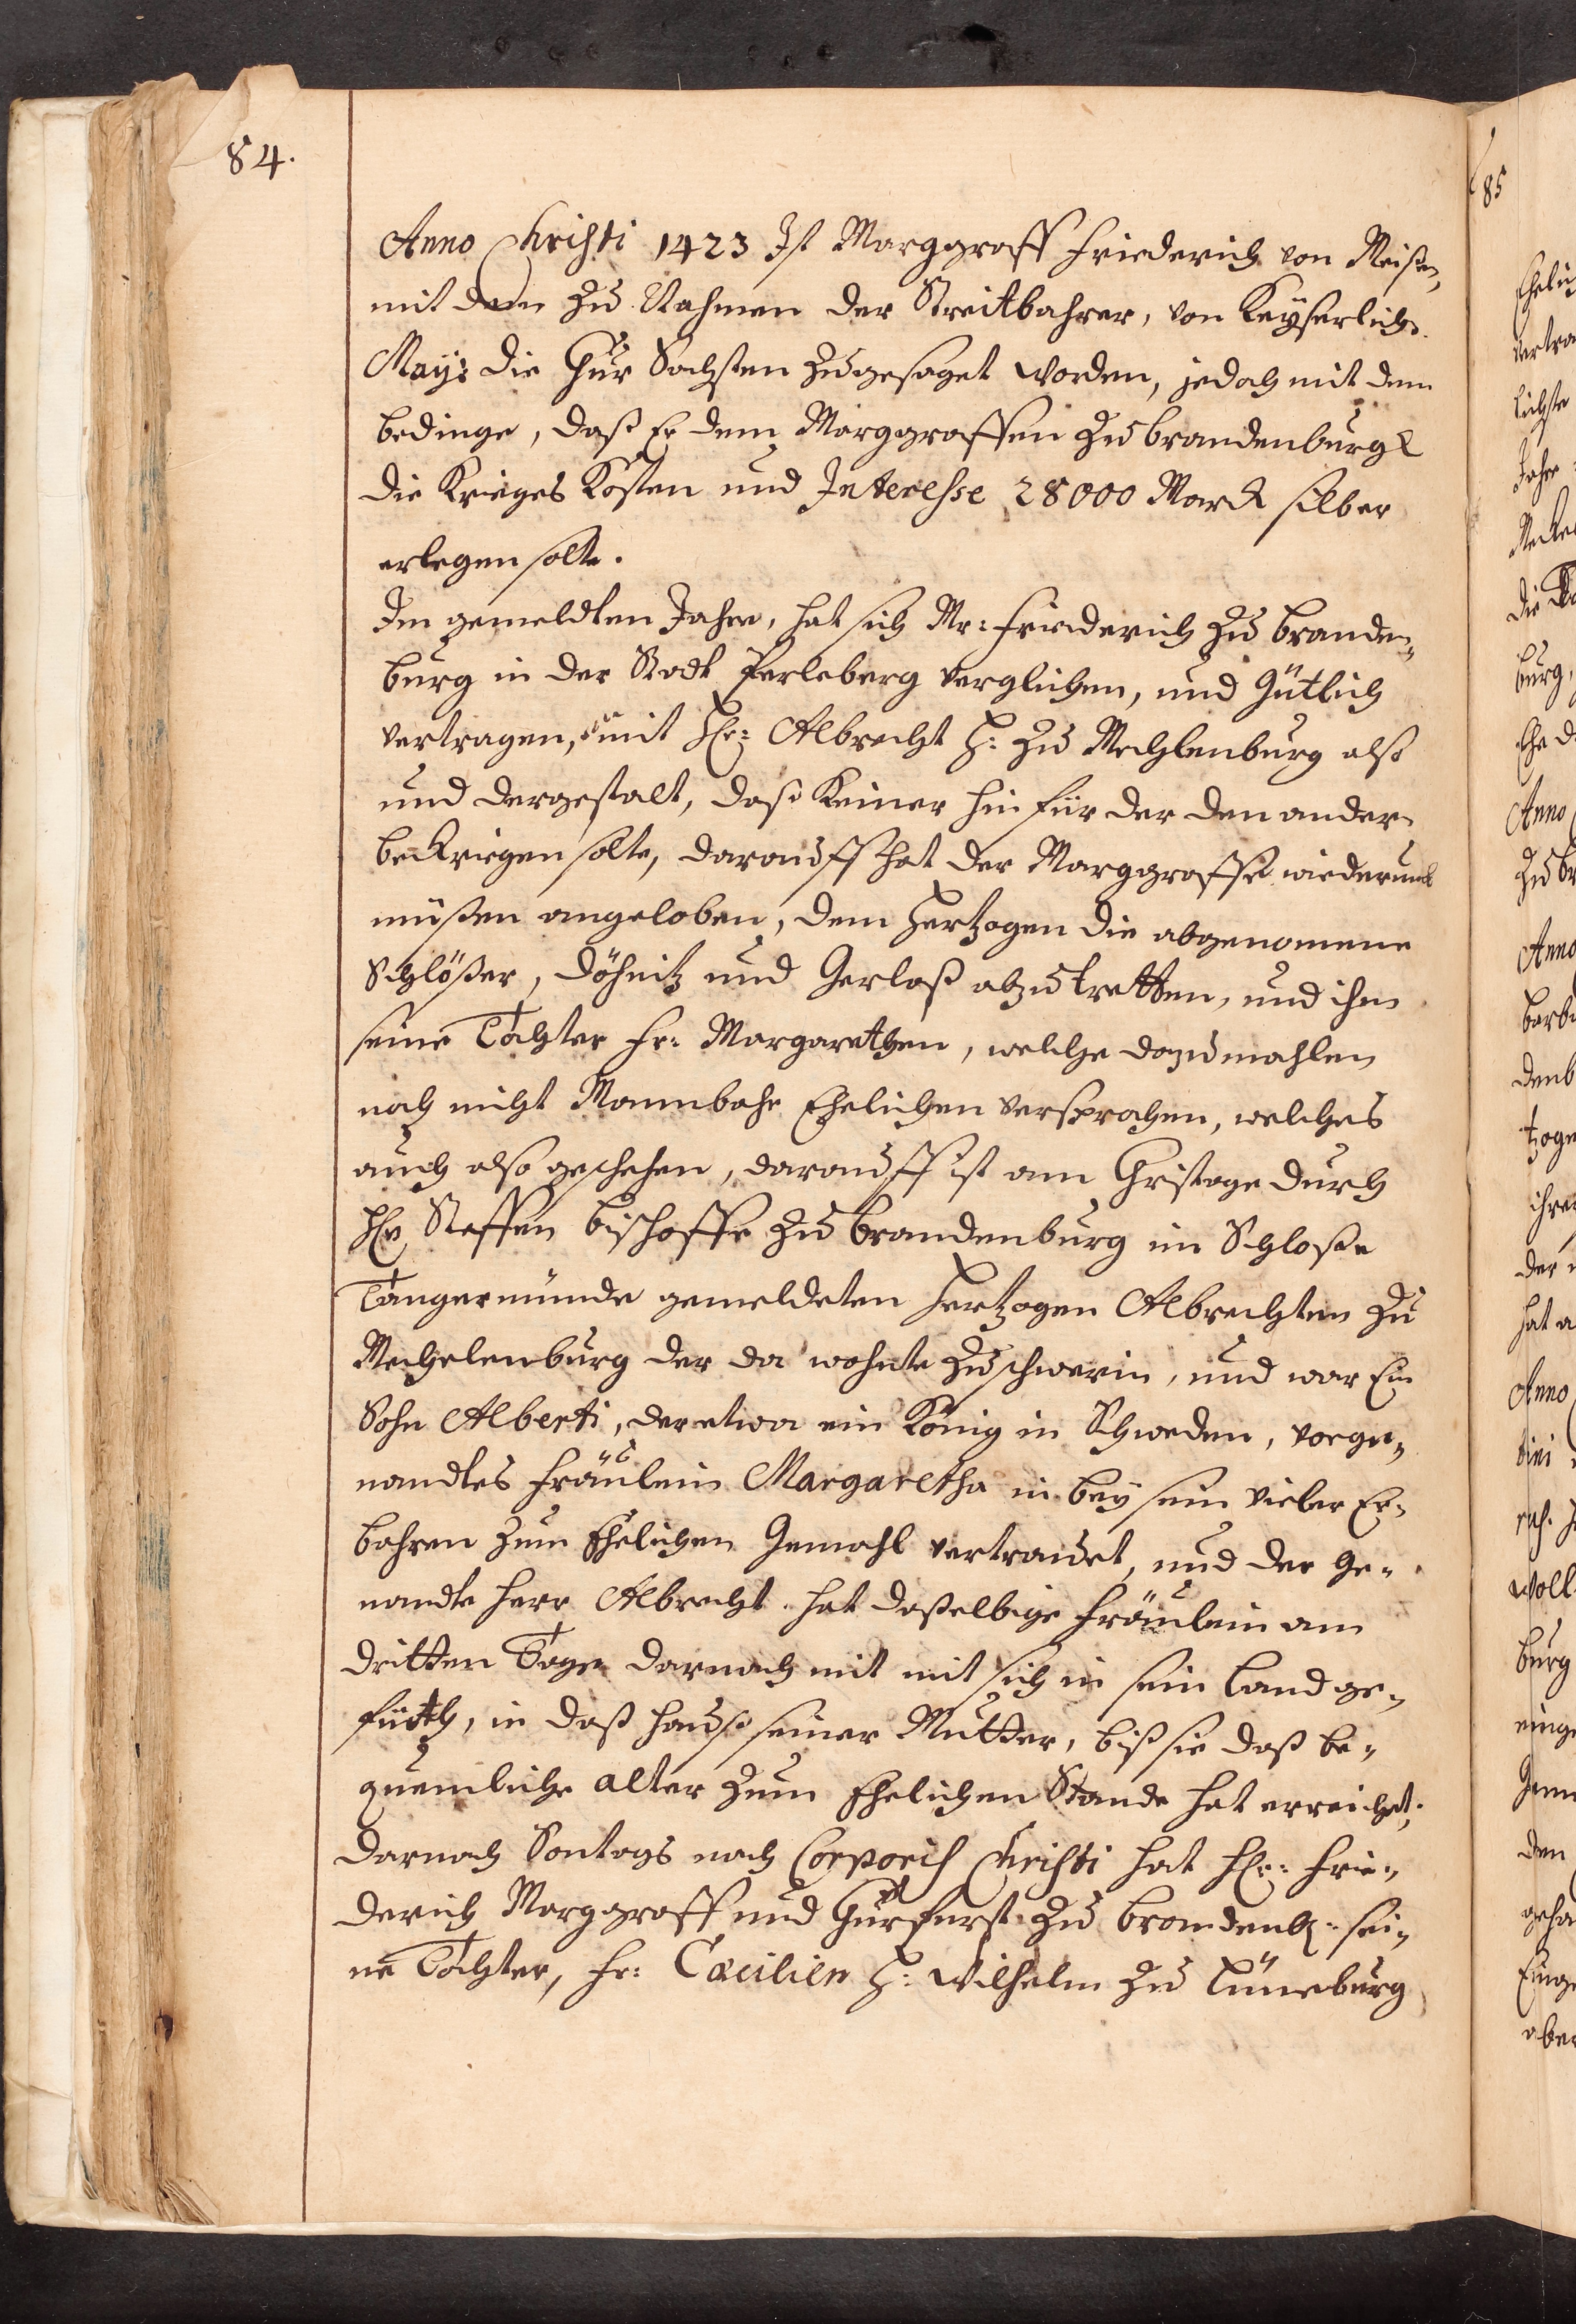 84.
Anno Christi 1423 Ist Marggraff Friederich von Meißen,
mit dem Zu Nahmen der Streitbahrer, von Keyserlich.
May: die Chur Sachsten Zugesaget worden, jedoch mit dem
bedinge, daß Er dem Marggraffen Zu brandenburg
die Krieges Kosten und Interesse 28000 Marck silber
erlegen solte.
Im gemeldten Jahre, hat sich Mr: Friederich Zu branden„
burg in der Stadt Perleberg verglichen, und Gütlich
vertragen, mit Hr: Albrecht H: Zu Mechlenburg also
und dergestalt, daß Keiner hin für der den andern
beckriegen solte, darauff hat der Marggraffe wiederumb
müßen angeloben, dem Hertzogen die abgenomene
Schlößer, Döhnitz und Gerlaß abzutretten, und ihm
seine Tochter Fr: Margarethen, welche dazumahlen
noch nicht Mannbahr Ehelichen versprochen, welches
auch also geschehen, darauff ist am Christage durch
Hr Steffen bischoffe Zu brandenburg im Schloße
Tangermünde gemeldeten Hertzogen Albrechten Zu
Mechelenburg der da wohnte Zu schwerin, und war Ein
Sohn Alberti, der etwa ein König in Schweden, vorge„
nandtes Fräulein Margaretha in bey sein vieler Er„
bahren zum Ehelichen Gemahl vertrauet, und der Ge„
nandte Herr Albrecht hat daßelbige Fräulein am
dritten Tage darnach mit mit sich in sein Land ge„
füth, in daß Hauße seiner Mutter, biß sie daß be„
quemliche alter zum Ehelichen Stande hat erreichet;
darnach Sontags nach Corporis Christi hat Hr: Frie„
derich Marggraff und Churfurst Zu brandenb: sei„
ne Tochter, Fr: Cæcilien H: Wilhelm Zu Lüneburg
85